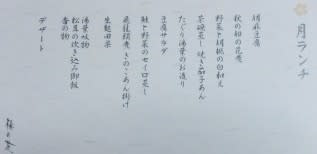 月ランチ
胡麻豆腐
秋の初の花煮
野菜と胡桃の白和え
茶碗蒸し 焼き茄子あん
たぐり湯葉のお造り
豆腐サラダ
鮭と野菜のセイロ蒸し
飛龍頭煮 きのこあん掛け
生麩田楽
湯葉吸物
松茸の炊き込み御飯
香の物
デザート